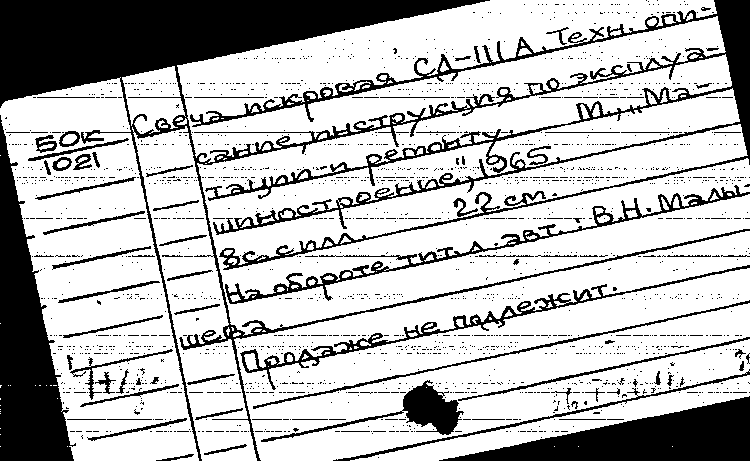 50К
1021
Свеча искровая СД-III А. Техн. опи-
сание, инструкция по эксплуа-
тации и ремонту. М., „Ма-
шиностроение", 1965.
8с. с илл. 22 см.
На обороте тит. л. авт.: В.Н. Малы-
шева.
Продаже не подлежит.